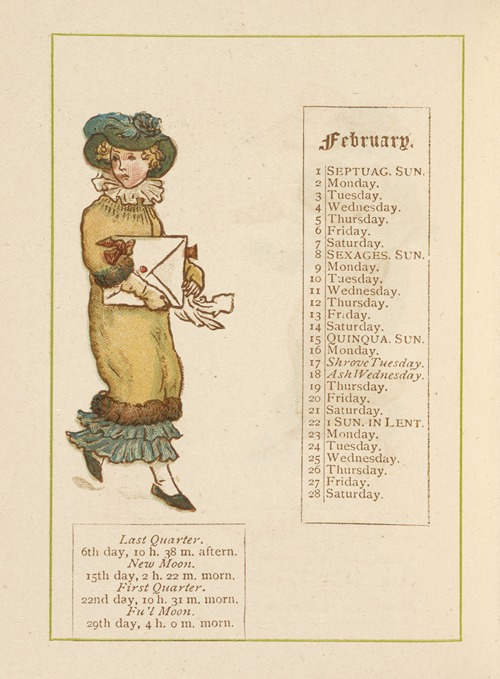 February.
1 SEPTUAG. SUN.
2 Monday.
3 Tuesday.
4 Wednesday.
5 Thursday.
6 Friday.
7 Saturday.
8 SEXAGES. SUN.
9 Monday.
10 Tuesday.
11 Wednesday.
12 Thursday.
13 Friday.
14 Saturday.
15 QUINQUA. SUN.
16 Monday.
17 Shrove Tuesday.
18 Ash Wednesday.
19 Thursday.
20 Friday.
21 Saturday.
22 1 SUN. IN LENT.
23 Monday.
24 Tuesday.
25 Wednesday.
26 Thursday.
27 Friday.
28 Saturday.
Last Quarter.
6th day, 10 h. 38 m. aftern.
New Moon.
15th day, 2 h. 22 m. morn.
First Quarter.
22nd day, 10 h. 31 m. morn.
Fu'l Moon.
29th day, 4 h. 0 m. morn.